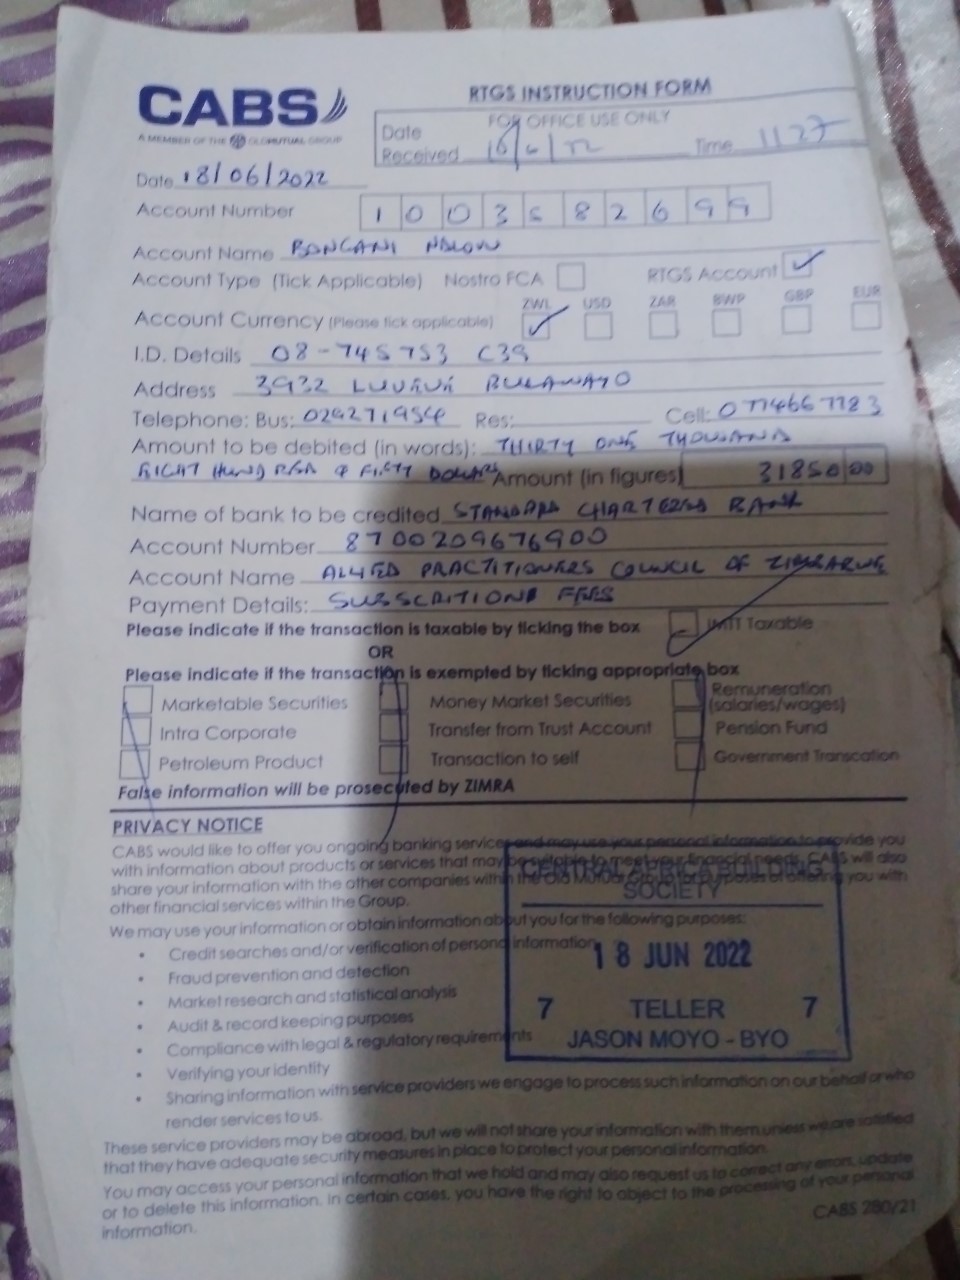 CABS
A MEMBER OF THE OLDMUTUAL GROUP
RTGS INSTRUCTION FORM
FOR OFFICE USE ONLY
Date Received 18/6/22 Time 1127
Date 18/06/2022
Account Number 1 0 0 3 5 8 2 6 9 9
Account Name BONGANI NDLOVU
Account Type (Tick Applicable) Nostro FCA RTGS Account ✓
ZWL USD ZAR BWP GBP EUR
Account Currency (Please tick applicable) ✓
I.D. Details 08-745753 C39
Address 3932 LUVEVE BULAWAYO
Telephone: Bus: 029271954 Res: Cell: 0774667783
Amount to be debited (in words): THIRTY ONE THOUSAND
EIGHT HUNDRED & FIFTY DOLLARS Amount (in figures) 31850 00
Name of bank to be credited STANDARD CHARTERED BANK
Account Number 8700209676900
Account Name ALLIED PRACTITIONERS COUNCIL OF ZIMBABWE
Payment Details: SUBSCRITIONS FEES
Please indicate if the transaction is taxable by ticking the box IMTT Taxable
OR
Please indicate if the transaction is exempted by ticking appropriate box
Marketable Securities Money Market Securities Remuneration (salaries/wages)
Intra Corporate Transfer from Trust Account Pension Fund
Petroleum Product Transaction to self Government Transcation
False information will be prosecuted by ZIMRA
PRIVACY NOTICE
CABS would like to offer you ongoing banking services and may use your personal information to provide you
with information about products or services that may be suitable to meet your financial needs. CABS will also
share your information with the other companies within the Old Mutual Group for purposes of offering you with
other financial services within the Group.
We may use your information or obtain information about you for the following purposes:
• Credit searches and/or verification of personal information
• Fraud prevention and detection
• Market research and statistical analysis
• Audit & record keeping purposes
• Compliance with legal & regulatory requirements
• Verifying your identity
• Sharing information with service providers we engage to process such information on our behalf or who
render services to us.
These service providers may be abroad, but we will not share your information with them unless we are satisfied
that they have adequate security measures in place to protect your personal information.
You may access your personal information that we hold and may also request us to correct any errors, update
or to delete this information. In certain cases, you have the right to object to the processing of your personal
information.
CABS 280/21
CENTRAL AFRICA BUILDING
SOCIETY
18 JUN 2022
7 TELLER 7
JASON MOYO - BYO